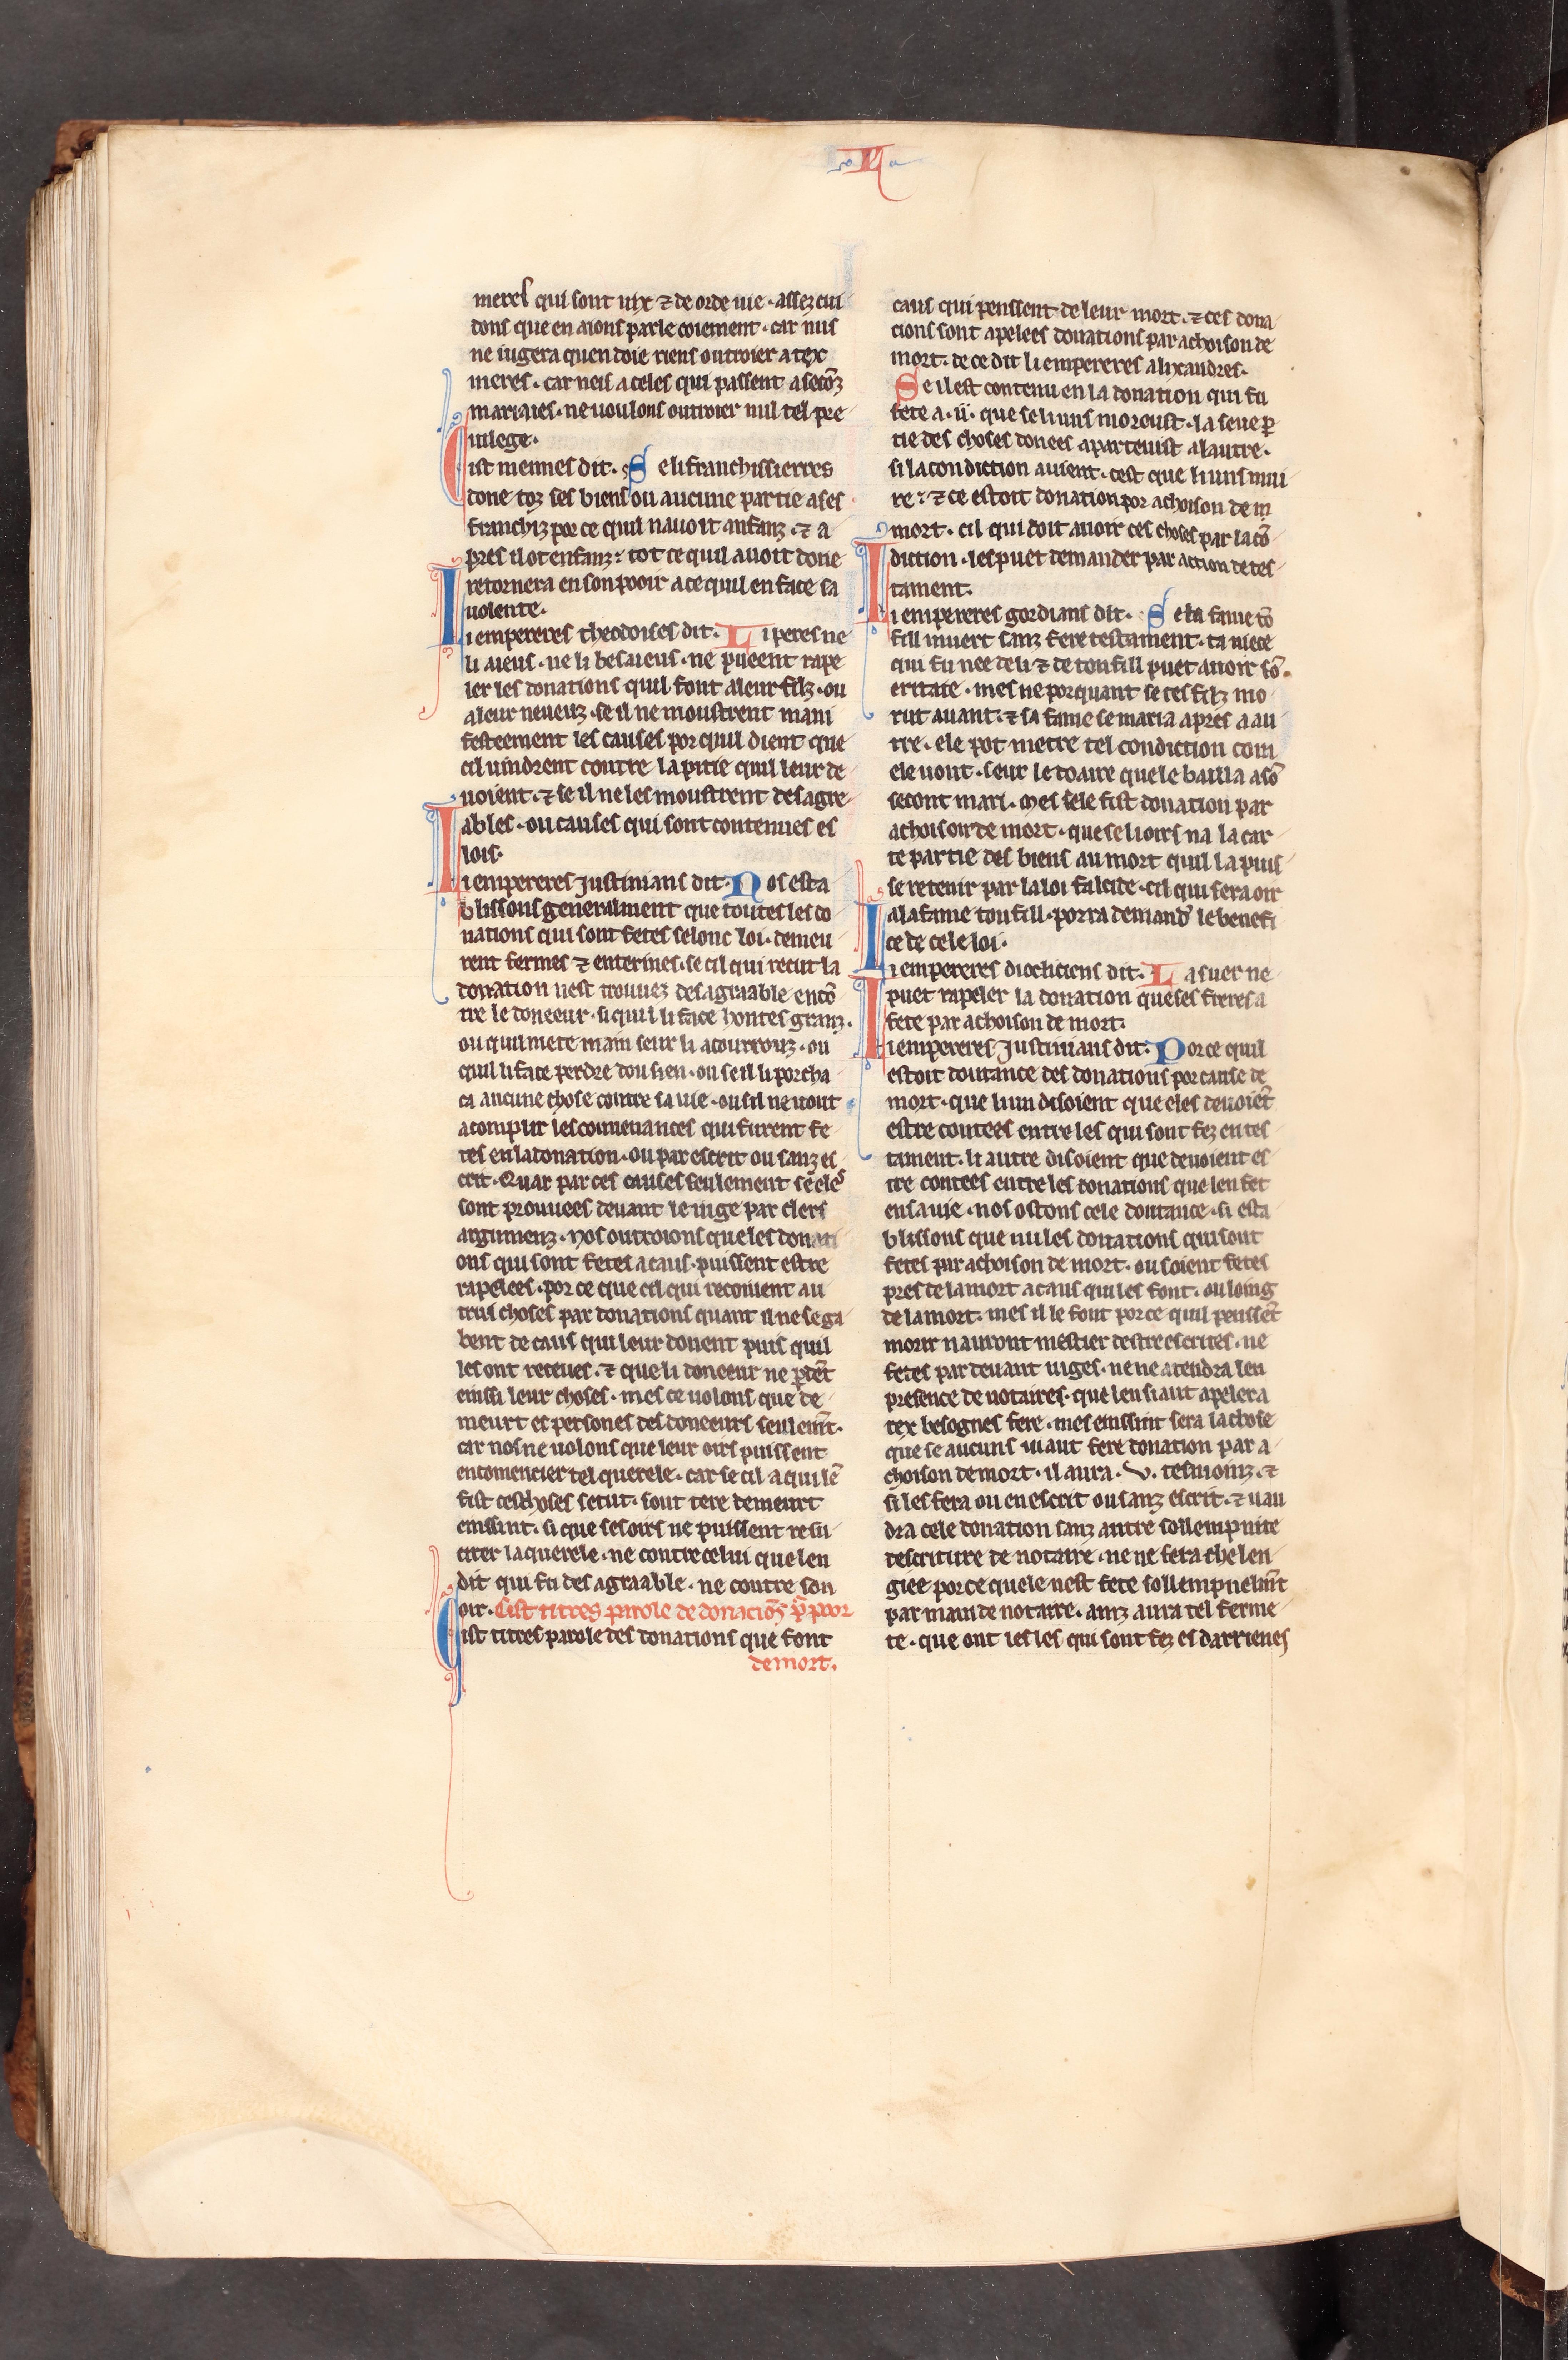 L
meres qui sont uix ⁊ de orde uie · assez cui
dons que en aions parle coiement · car nus
ne iugera quen doie riens outroier a tex
meres · car neis a celes qui passent a secōz
mariaies · ne uoulons outroier nul tel pre
uilege ·
Cist meimes dit · Se li franchissierres
done toz ses biens ou aucune partie a ses
franchiz por ce quil nauoit anfanz · ⁊ a
pres il ot enfanz : tot ce quil auoit done
retornera en son pooir a ce quil en face sa
uolente ·
Li empereres theodoises dit · Li peres ne
li aieus · ne li besaieus · ne pueent rape
ler les donations quil font a leur filz · ou
a leur neueuz · se il ne moustrent mani
festeement les causes por quil dient que
cil uindrent contre la pitie quil leur de
uoient · ⁊ se il ne les moustrent desagre
ables · ou causes qui sont contenues es
lois ·
Li empereres Justinians dit · Nos esta
blissons generalment que toutes les do
nations qui sont fetes selonc loi · demeu
rent fermes ⁊ enterines · se cil qui recut la
donation nest trouuez desagraable encō
tre le doneeur · si quil li face hontes granz ·
ou quil mete main seur li a courrouz · ou
quil li face perdre dou sien · ou se il li porcha
ca aucune chose contre sa uie · ou sil ne uout
acomplir les conuenances qui furent fe
tes en la donation · ou par escrit ou sanz es
crit · Quar par ces causes seulement se eles
sont prouuees deuant le iuge par clers
argumenz · nos outroions que les donati
ons qui sont fetes a caus · puissent estre
rapelees · por ce que cil qui recoiuent au
trui choses par donations quant il ne se ga
bent de caus qui leur donent puis quil
les ont receues · ⁊ que li doneeur ne ꝑdēt
einssi leur choses · mes ce uolons que de
meurt es persones des doneeurs seulemt̄ ·
car nos ne uolons que leur oirs puissent
encomencier tel querele · car se cil a qui lē
fist ces choses se tut · sont tere demeurt
einssint · si que ses oirs ne puissent resu
citer la querele · ne contre celui que len
dit qui fu desagraable · ne contre son
oir · Cist titres parole de donaciōs ꝑ poor
de mort.
Cist titres parole des donations que font
caus qui penssent de leur mort · ⁊ ces dona
cions sont apelees donations par achoison de
mort · de ce dit li empereres alixandres ·
Se il est contenu en la donation qui fu
fete a · ii · que se li uns moroust · la seue ꝑ
tie des choses donees apartenist a lautre ·
si la condiction auient · cest que li uns mui
re : ⁊ ce estoit donation por achoison de m
mort · cil qui doit auoir ces choses par la cō
diction · les puet demander par action de tes
tament ·
Li empereres gordians dit · Se ta fame tō
fill muert sanz fere testament · ta niece
qui fu nee de li ⁊ de ton fill puet auoir sō
eritaie · mes neporquant se tes filz mo
rut auant · ⁊ sa fame se maria apres a au
tre · ele pot metre tel condiction com
ele uout · seur le doaire quele bailla a sō
secont mari · mes sele fist donation par
achoison de mort · que se li oirs na la car
te partie des biens au mort quil la puis
se retenir par la loi falcide · cil qui sera oir
a la fame ton fill · porra demand' le benefi
ce de cele loi ·
Li empereres diocliciens dit · La suer ne
puet rapeler la donation que ses freres a
fete par achoison de mort ·
Li empereres Justinians dit · Por ce quil
estoit doutance des donations por cause de
mort · que li un disoient que eles deuoiēt
estre contees entre les qui sont fez en tes
tament · li autre disoient que deuoient es
tre contees entre les donations que len fet
en sa uie · nos ostons cele doutance · si esta
blissons que nules donations qui sont
fetes par achoison de mort · ou soient fetes
pres de la mort a caus qui les font · ou loing
de la mort · mes il le font por ce quil penssēt
morir nauront mestier destre escrites · ne
fetes par deuant iuges · ne ne atendra len
presence de notaires · que len siaut apeler a
tex besognes fere · mes einssint sera la chose
que se aucuns uiaut fere donation par a
choison de mort · il aura · v · tesmoinz · ⁊
si les fera ou en escrit ou sanz escrit · ⁊ uau
dra cele donation sanz autre sollempnite
descriture de notaire · ne ne sera chelen
giee por ce quele nest fete sollempnelmt̄
par main de notaire · ainz aura tel ferme
te · que ont les les qui sont fez es darrienes